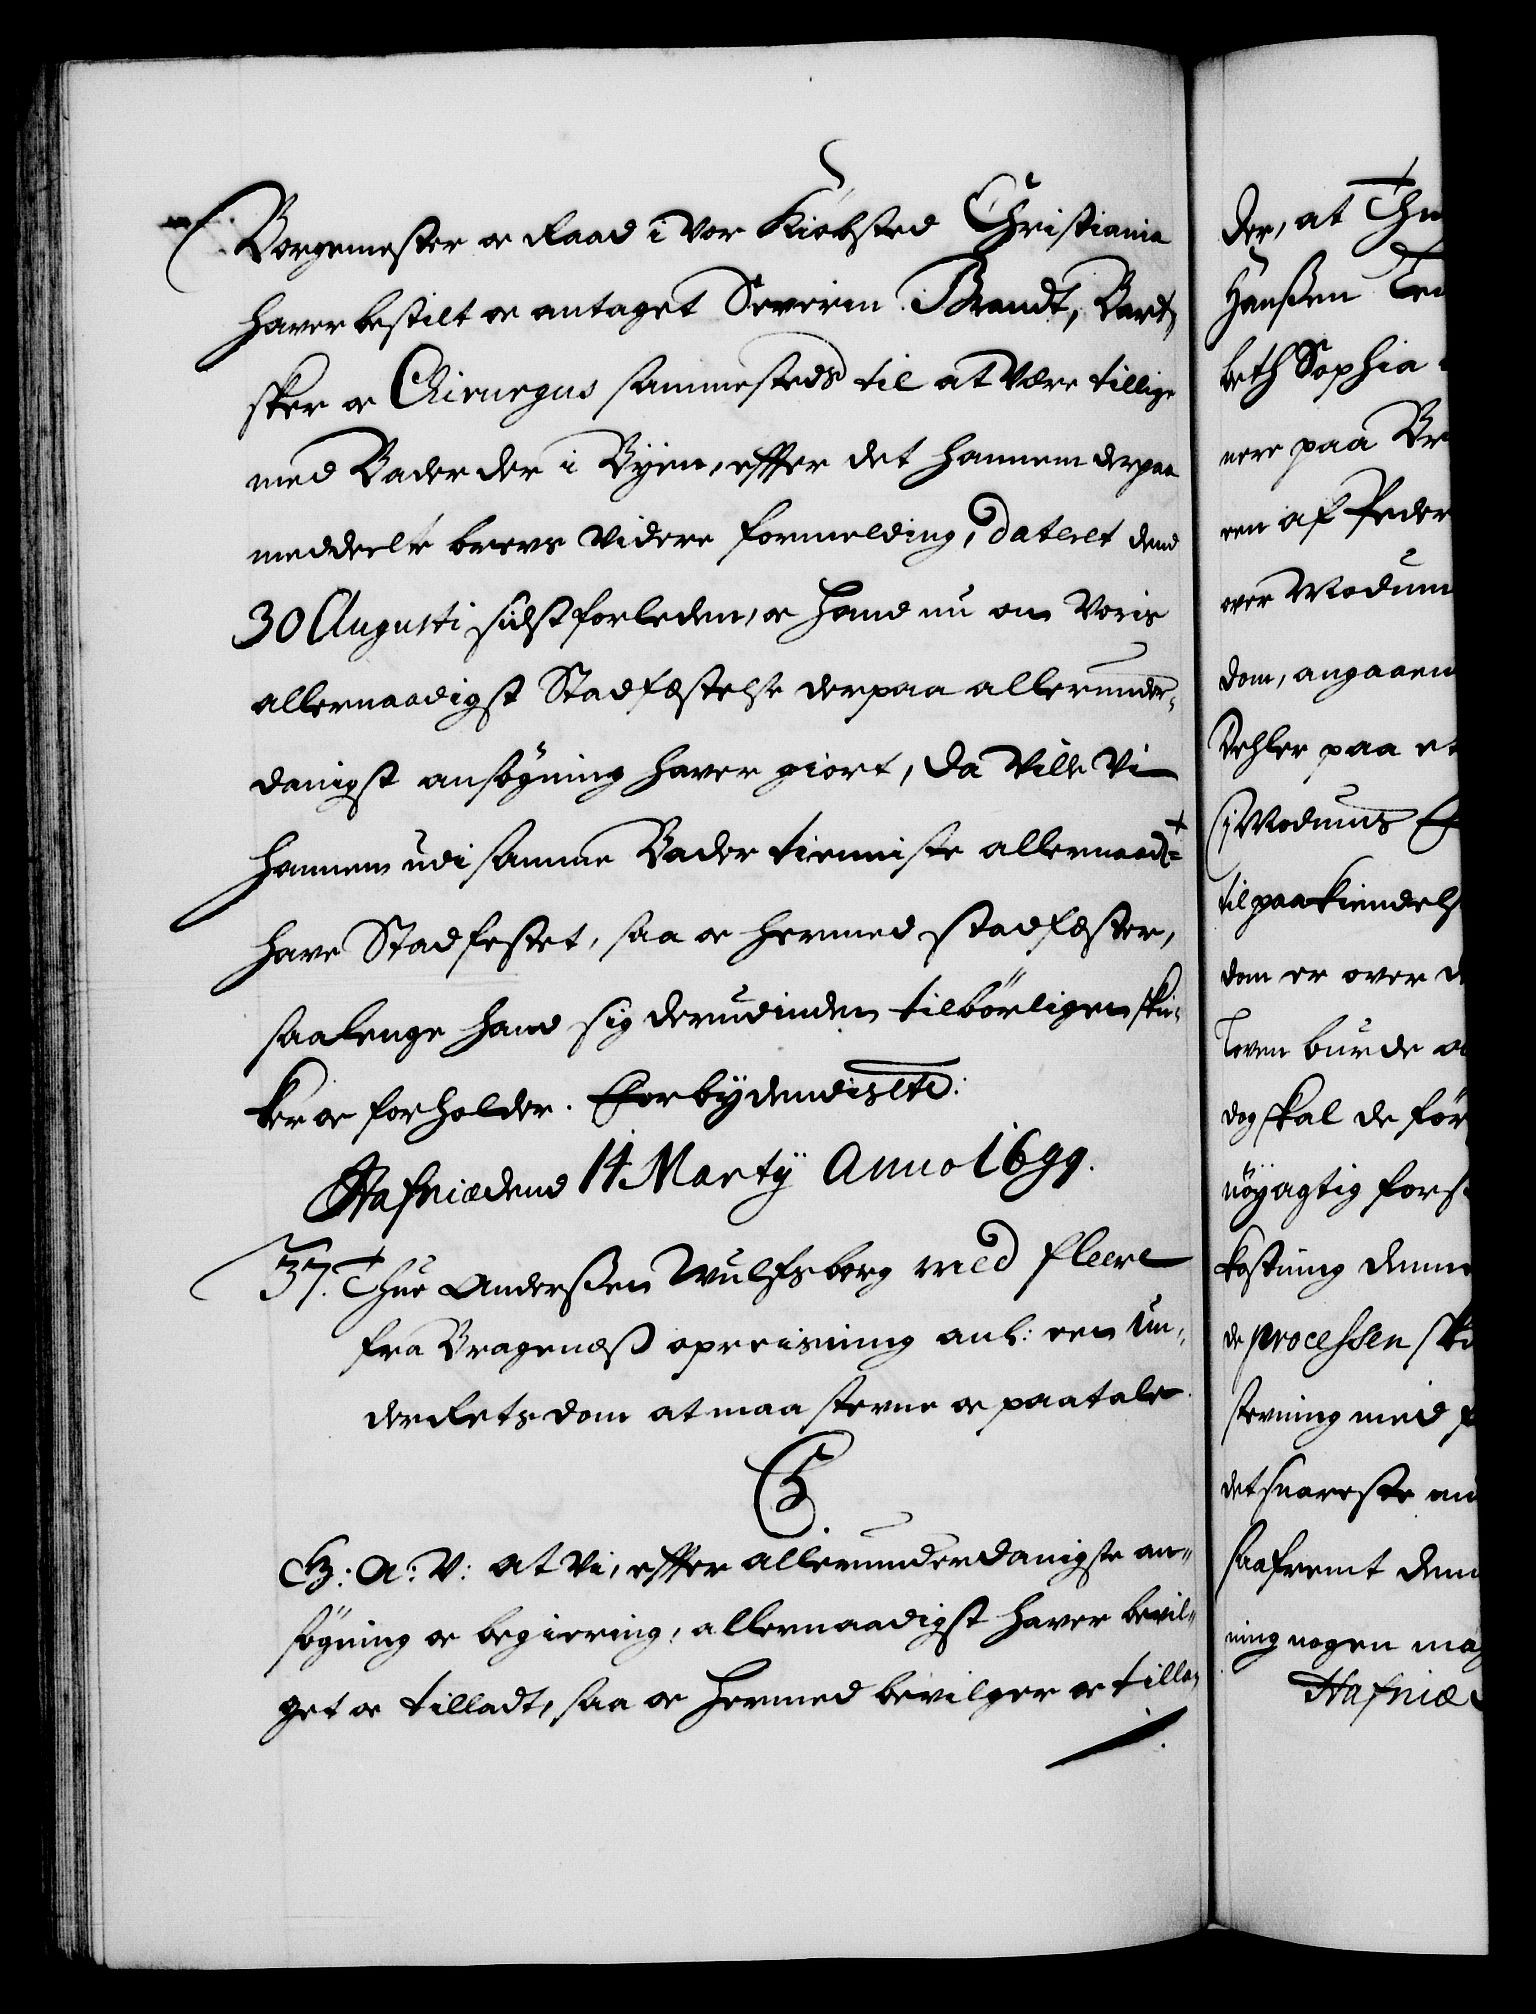 Borgemester oc Raad i vor Kiøbsted Christiania
haver bestilt oc antaget Severin Brandt, Bard,
sker oc Chirurgus sammesteds til at være tillige
med Bader der i Byen, effter det hannem derpaa
meddeelte brevs videre formelding, dateret dend
30 Augusti sidstforleden, oc hand nu om Voris
allernaadigst Stadfæstelse derpaa allerunder,,
danigst ansøgning haver giort, da ville Vi
hannem udi samme Bader tienniste allernaad:
have Stadfestet, saa oc hermed stadfæster,
saalenge hand sig derudinden tilbørligen skic,
ker oc forholder. Forbydendis etc:
Hafniæ dend 14 Marty Anno 1699.
37. Thue Anderßen Wulfsberg med fleere
fra Bragenæß opreisning anl: een un,,
derRets dom at maa stevne oc paatale
C5
G: A: V: at Vi, effter allerunderdanigste an,,
søgning oc begiering, allernaadigst haver bevil,,
get oc tilladt, saa oc hermed bevilger oc tilla,
der, at Thu
Hanßen
beth Sophia
nere paa Br
een af Peder
over Modum
dom, angaaen
Dehler paa et
i Modums
til paakiendels
dom er over d
Loven burde
dog skal de før
nøyagtig fors
kostning denne
de processen ski
stevning med f
det snareste mu
saafremt dem
ning nogen maa
Hafniæ